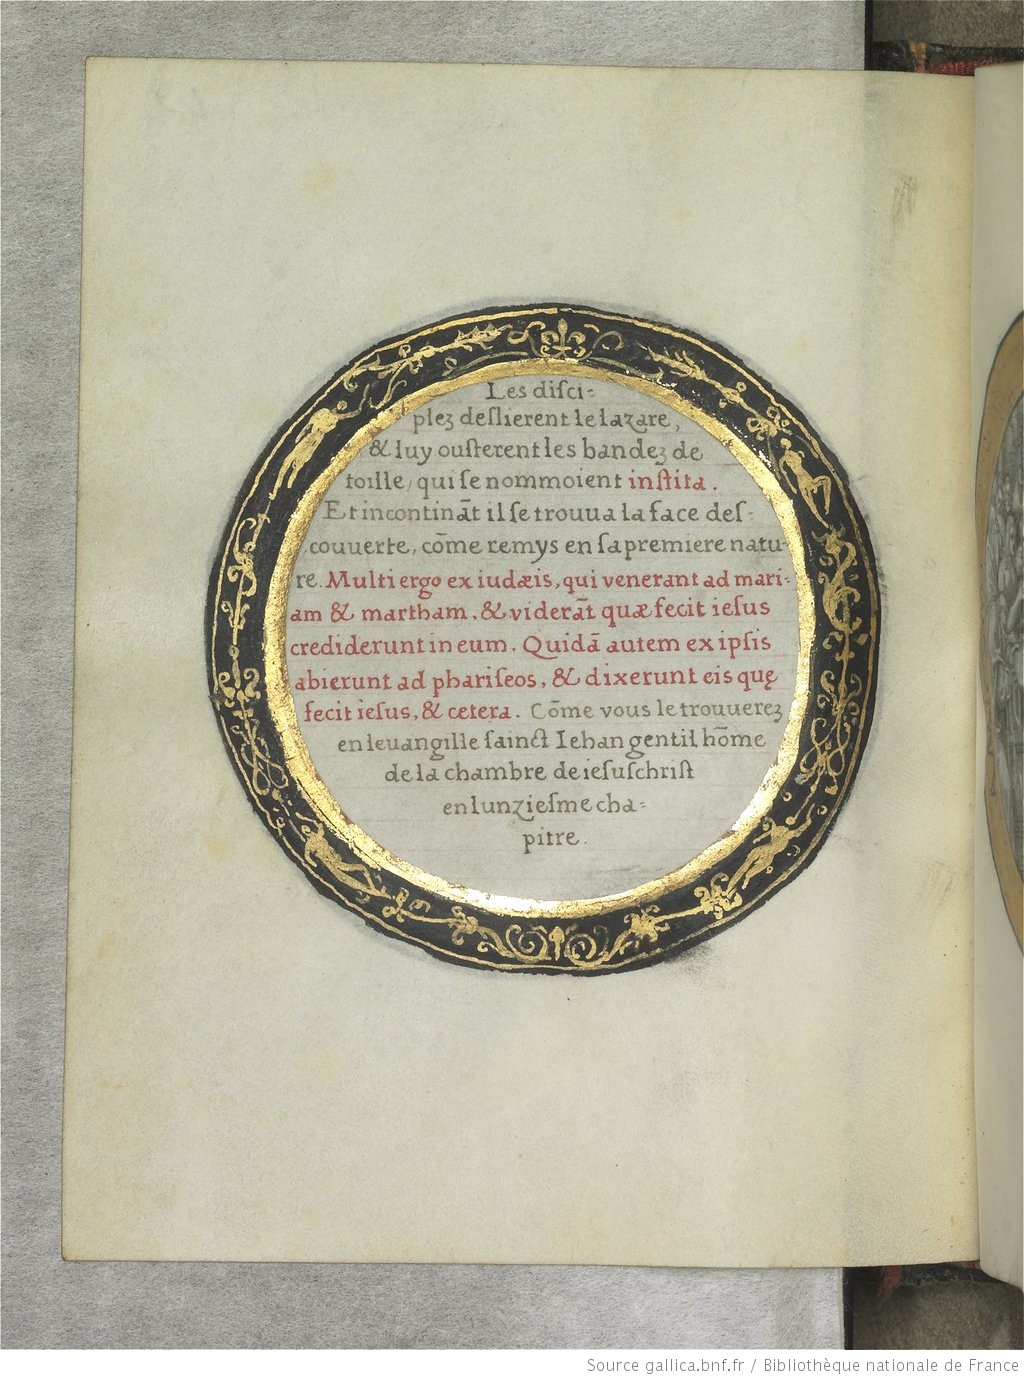 Les disci-
plez deslierent le lazare,
& luy ousterent les bandez de
toille, qui se nommoient instita.
Et incontināt il se trouua la face des-
couuerte, cōme remys en sa premiere natu-
re. Multi ergo ex iudæis, qui venerant ad mari-
am & martham, & viderāt quæ fecit iesus
crediderunt in eum. Quidā autem ex ipsis
abierunt ad phariseos, & dixerunt eis quę
fecit iesus, & cetera. Cōme vous le trouuerez
en leuangille sainct Iehan gentil hōme
de la chambre de iesuschrist
en lunziesme cha-
pitre.
Source gallica.bnf.fr / Bibliothèque nationale de France